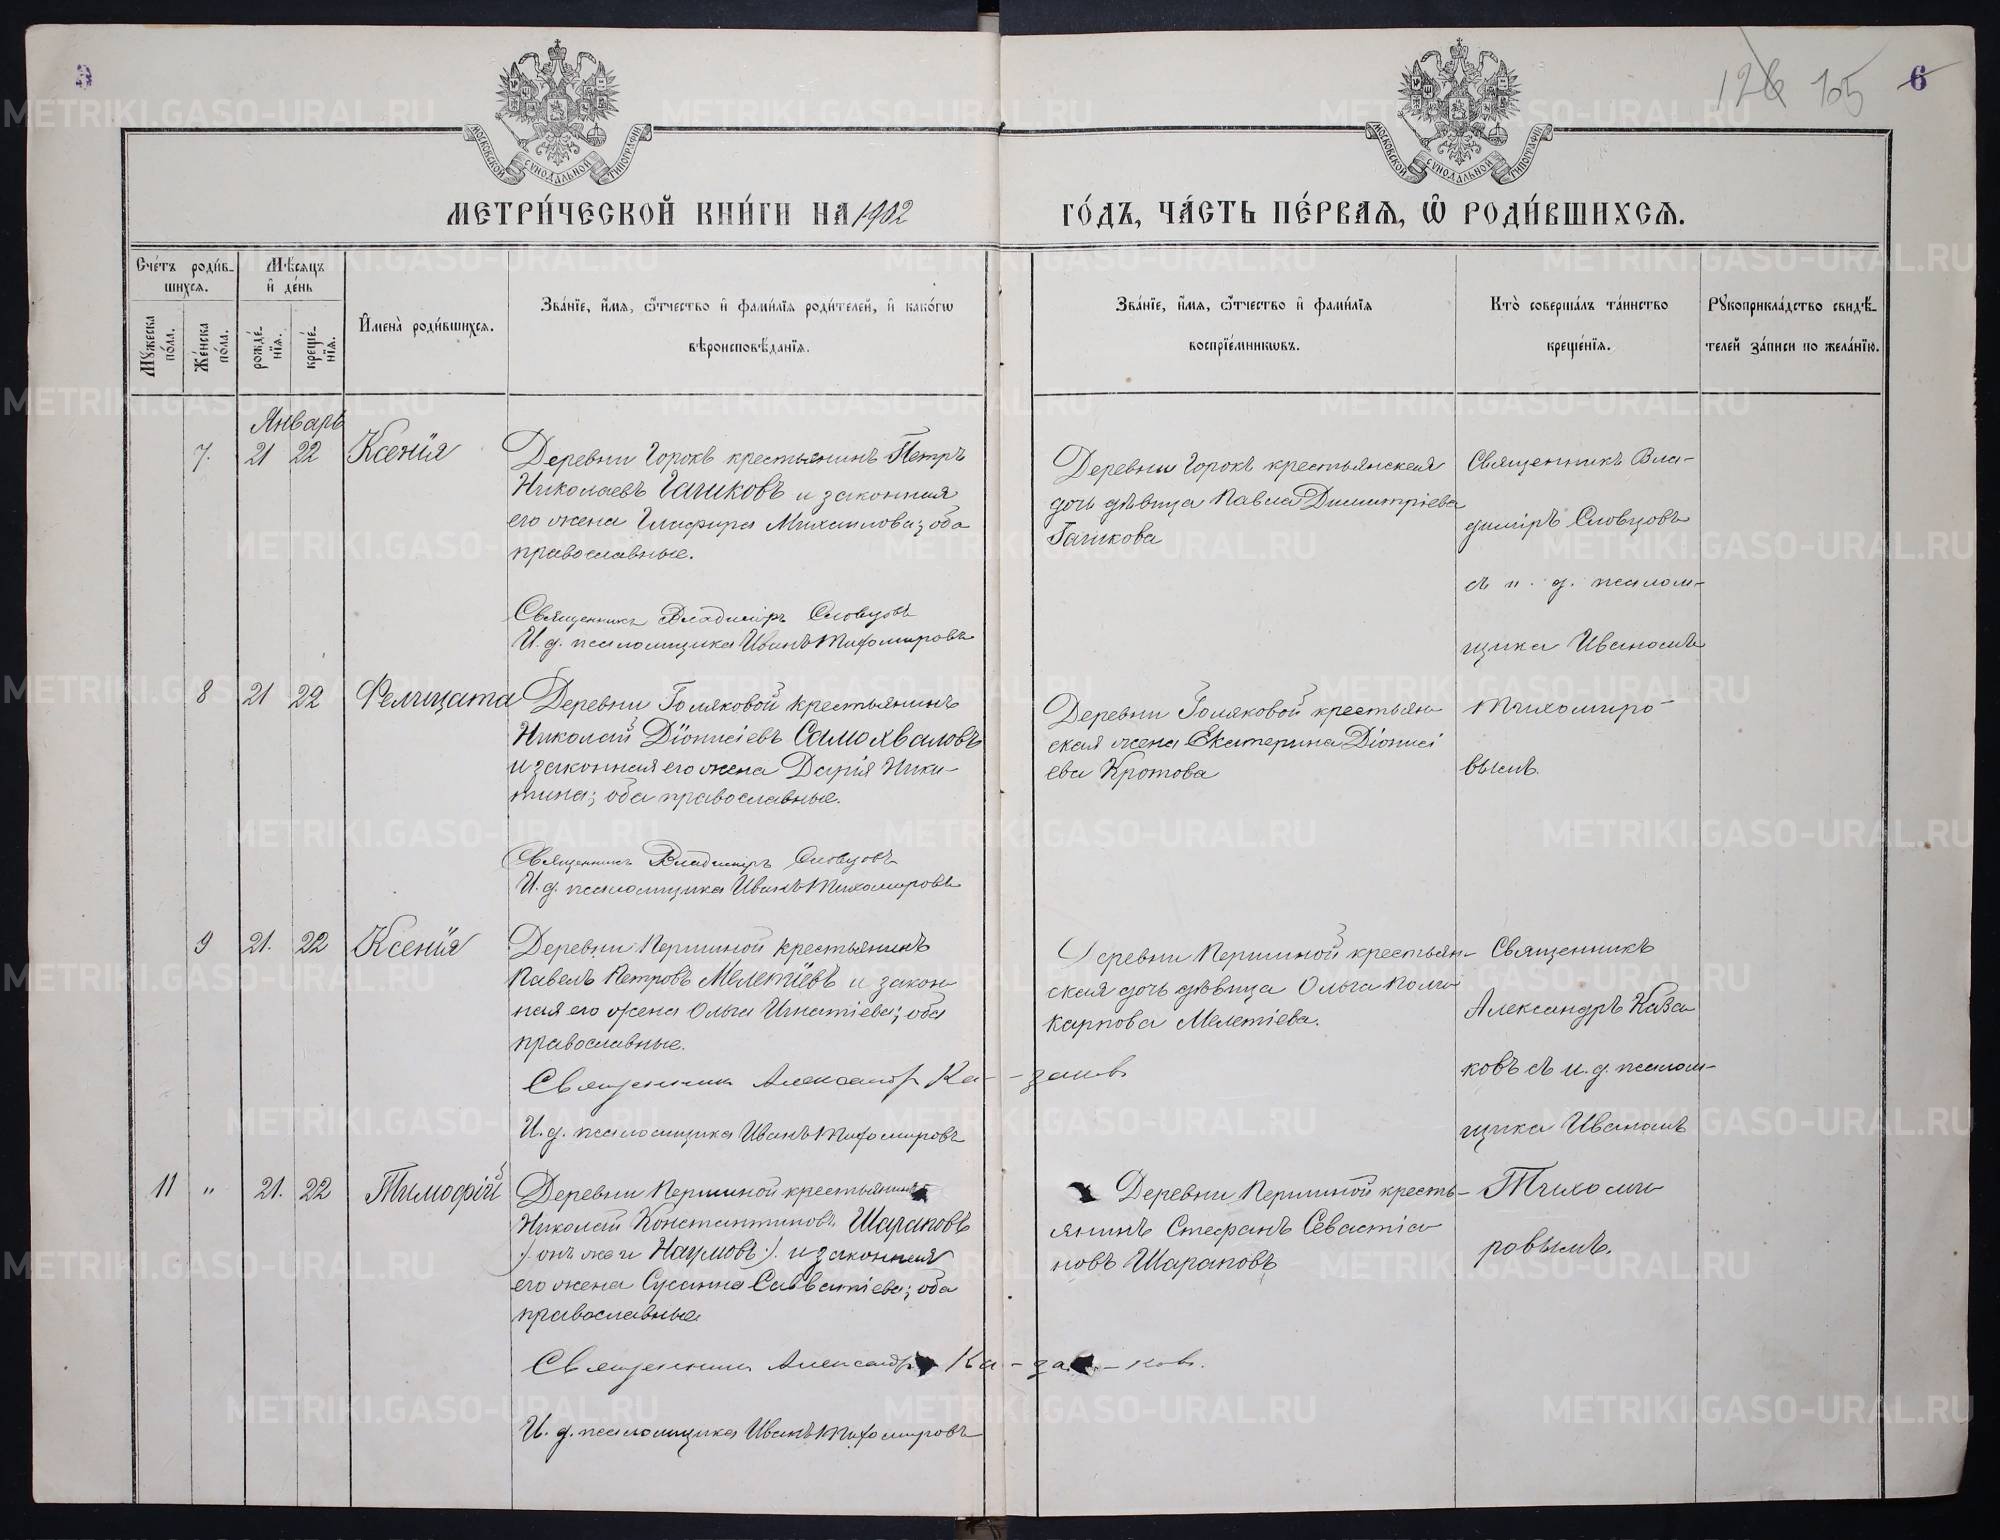 126 105 6
МОСКОВСКОЙ СѴНОДАЛЬНОЙ ТИПОГРАФІИ
МОСКОВСКОЙ СѴНОДАЛЬНОЙ ТИПОГРАФІИ
МЕТРИ́ЧЕСКОЙ КНИ́ГИ НА 1902 ГО́ДЪ, ЧА́СТЬ ПЕ́РВАѦ, Ѽ РОДИ́ВШИХСѦ.
Сче́тъ роди́в-
шихсѧ.
Му́жеска по́ла.
Же́нска по́ла.
Мѣ́сѧцъ
и҆ де́нь
рожде́-
нїѧ.
креще́-
нїѧ.
И҆мена̀ роди́вшихсѧ.
Зва́нїе, и҆́мѧ, ѻ҆́тчество и҆ фами́лїѧ роди́телей, и҆ како́гѡ
вѣроисповѣ́данїѧ.
Зва́нїе, и҆́мѧ, ѻ҆́тчество и҆ фами́лїѧ
воспрїе́мникѡвъ.
Кто̀ соверша́лъ та́инство
креще́нїѧ.
Рꙋкоприкла́дство свидѣ́-
телей за́писи по жела́нїю.
Январь
7. 21 22 Ксенія
Деревни Горокъ крестьянинъ Петръ
Николаевъ Гачиковъ и законная
его жена Глафира Михаилова; оба
православные.
Священникъ Владиміръ Словцовъ
И. д. псаломщика Иванъ Тихомировъ
Деревни Горокъ крестьянская
дочь дѣвица Павла Димитріева
Гачикова
Священникъ Вла-
диміръ Словцовъ
съ и. д. псалом-
щика Иваномъ
Тихомиро-
вымъ.
8 21 22 Фелицата
Деревни Голяковой крестьянинъ
Николай Діонисіевъ Самохваловъ
и законная его жена Дарія Ники-
тина; оба православные.
Священникъ Владиміръ Словцовъ
И. д. псаломщика Иванъ Тихомировъ
Деревни Голяковой крестьян
ская жена Екатерина Діониси
ева Кротова
9 21. 22 Ксенія
Деревни Першиной крестьянинъ
Павелъ Петровъ Мелетіевъ и закон-
ная его жена Ольга Игнатіева; оба
православные.
Священник Александр Ка-заков
И. д. псаломщика Иванъ Тихомировъ
Деревни Першиной крестьян-
ская дочь дѣвица Ольга Поли
карпова Мелетіева.
Священникъ
Александръ Каза
ковъ съ и. д. псалом-
щика Иваномъ
Тихоми
ровымъ.
11 " 21. 22 Тимофій
Деревни Першиной крестьянинъ
Николай Константиновъ Шараповъ
/: онъ же и Наумовъ :/ и законная
его жена Сусанна Савватіева; оба
православные
Священник Александр Ка-за-ков.
И. д. псаломщика Иванъ Тихомировъ
Деревни Першиной кресть-
янинъ Стефанъ Севастіа
новъ Шараповъ
METRIKI.GASO-URAL.RU